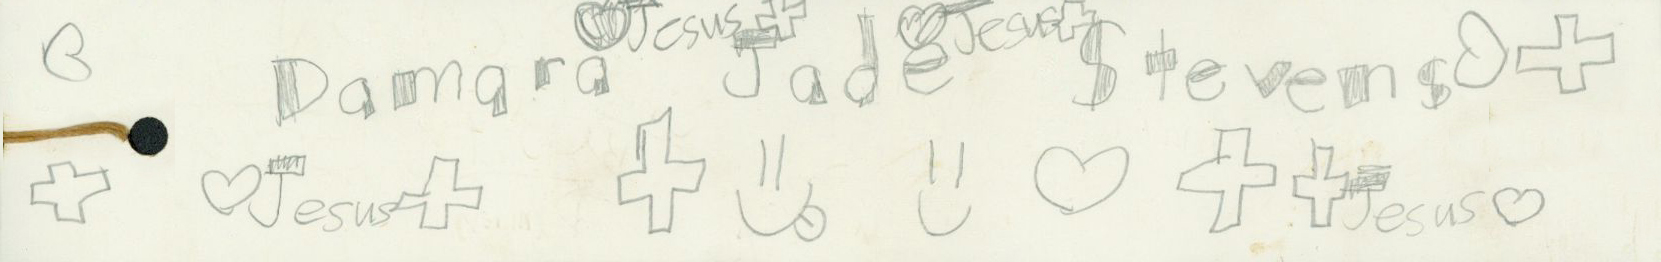 Jesus Jesus
Damara Jade Stevens
Jesus Jesus